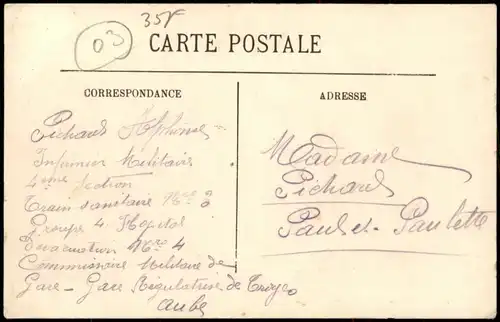 03
35F
CARTE POSTALE
CORRESPONDANCE
ADRESSE
Pichard Alphonse
Infirmier Militaire
4ème Section
Train sanitaire No 3
Groupe 4 Hopital
Evacuation No 4
Commissaire Militaire de
Gare - Gare Régulatrice de Troyes
Aube
Madame
Pichard
Paul et Paulette